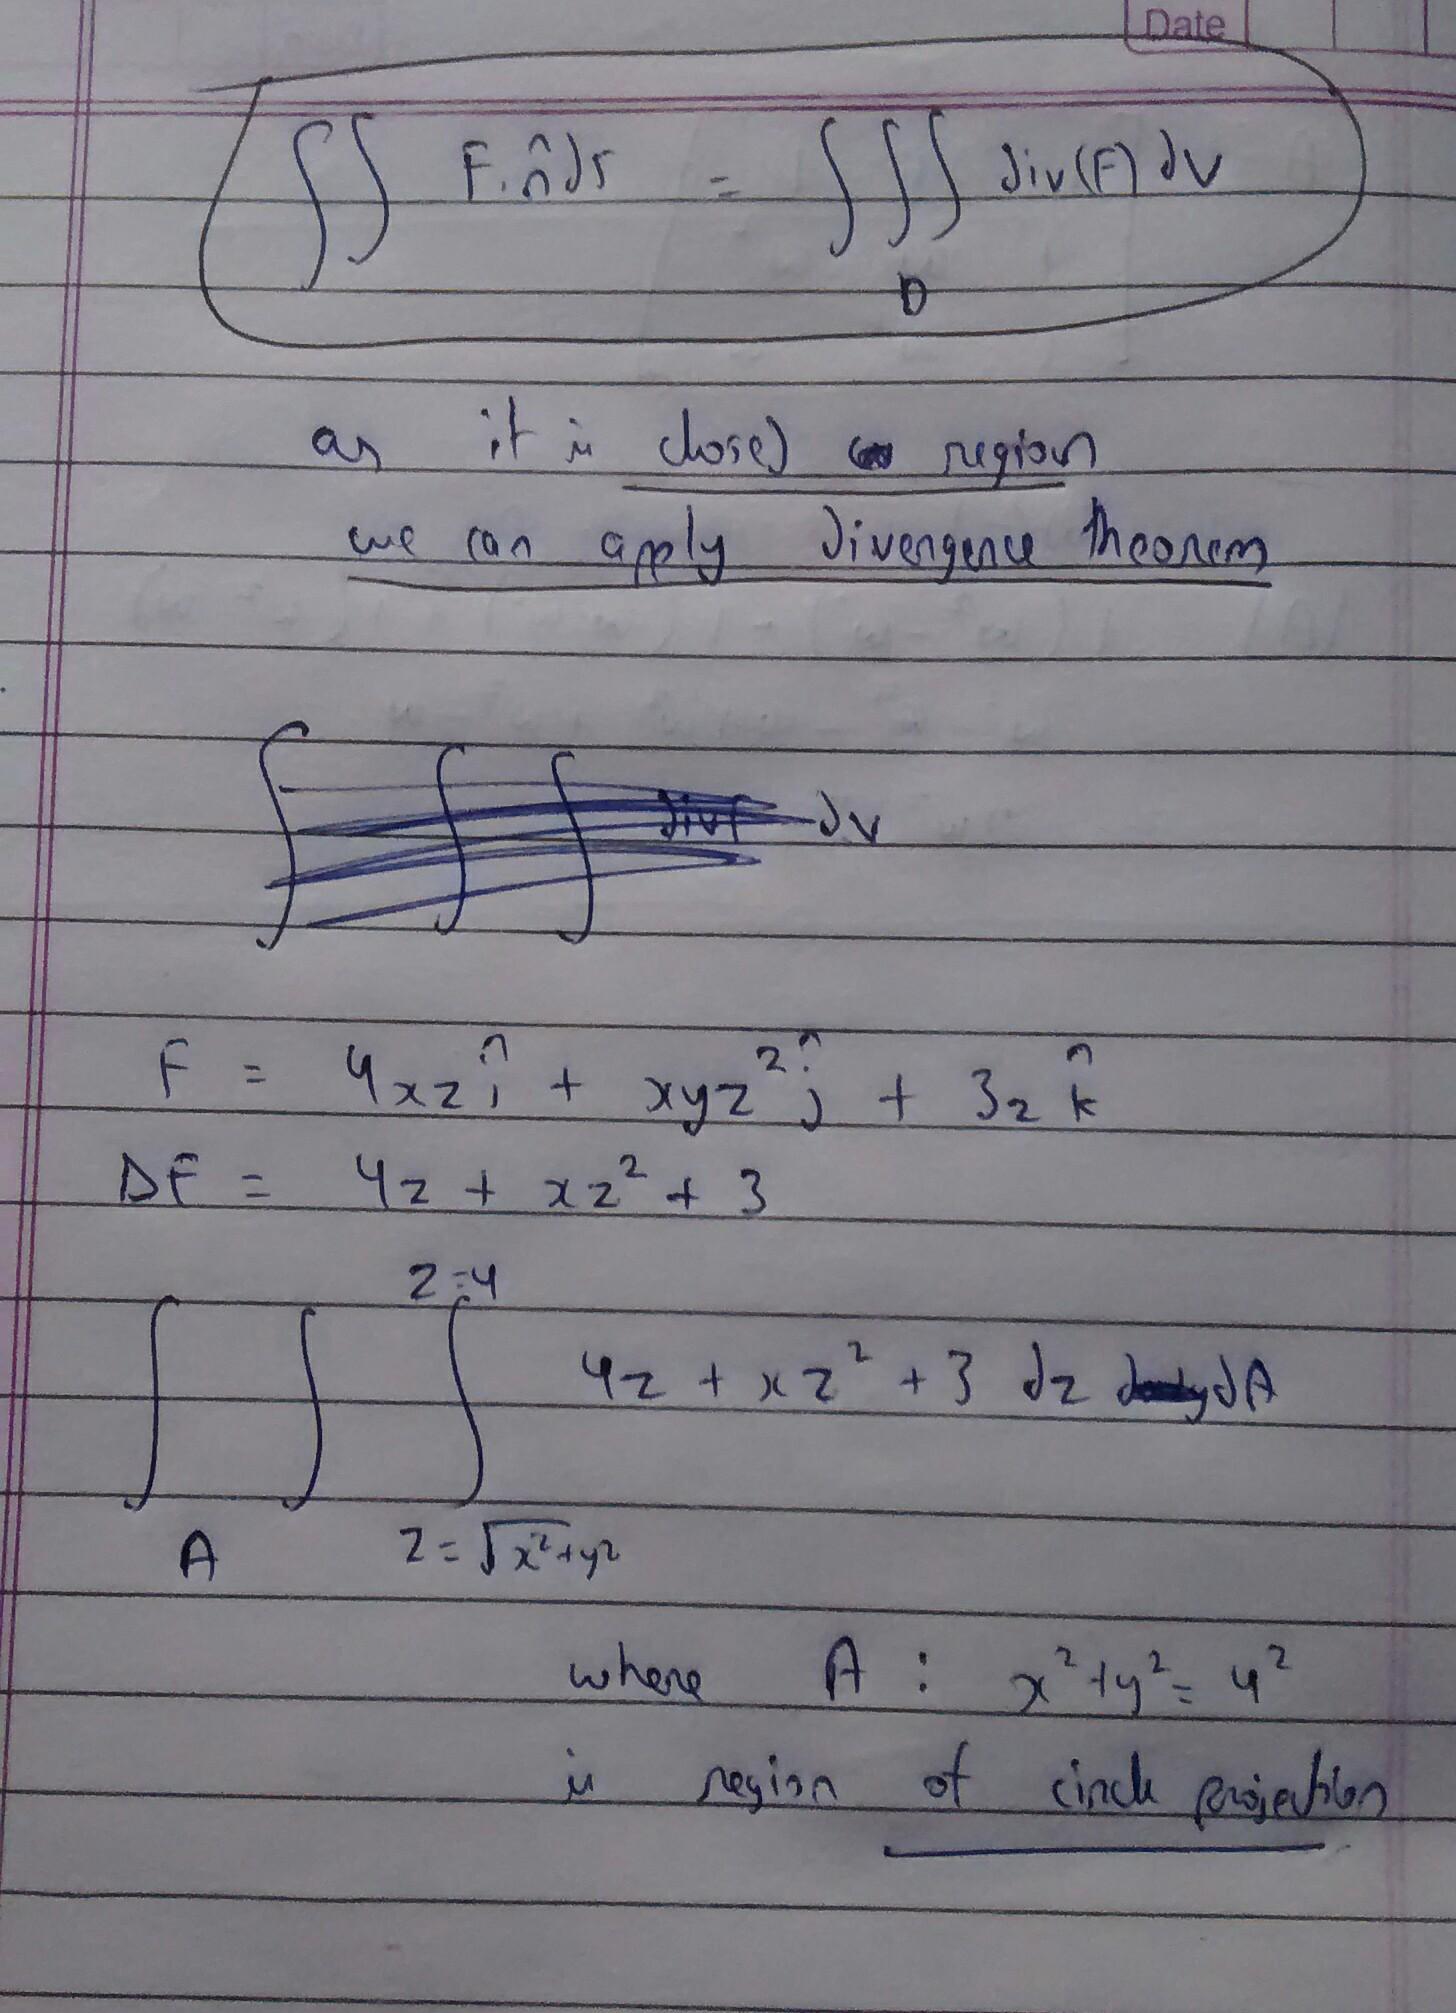 Date
∬ F.n̂ ds = ∭ div(F) dv
D
as it is closed region
we can apply divergence theorem
∭ divF dv
F = 4xz î + xyz² ĵ + 3z k̂
ΔF = 4z + xz² + 3
z=4
∫ ∫ ∫ 4z + xz² + 3 dz dA
A z=√x²+y²
where A : x²+y²= 4²
is region of circle projection